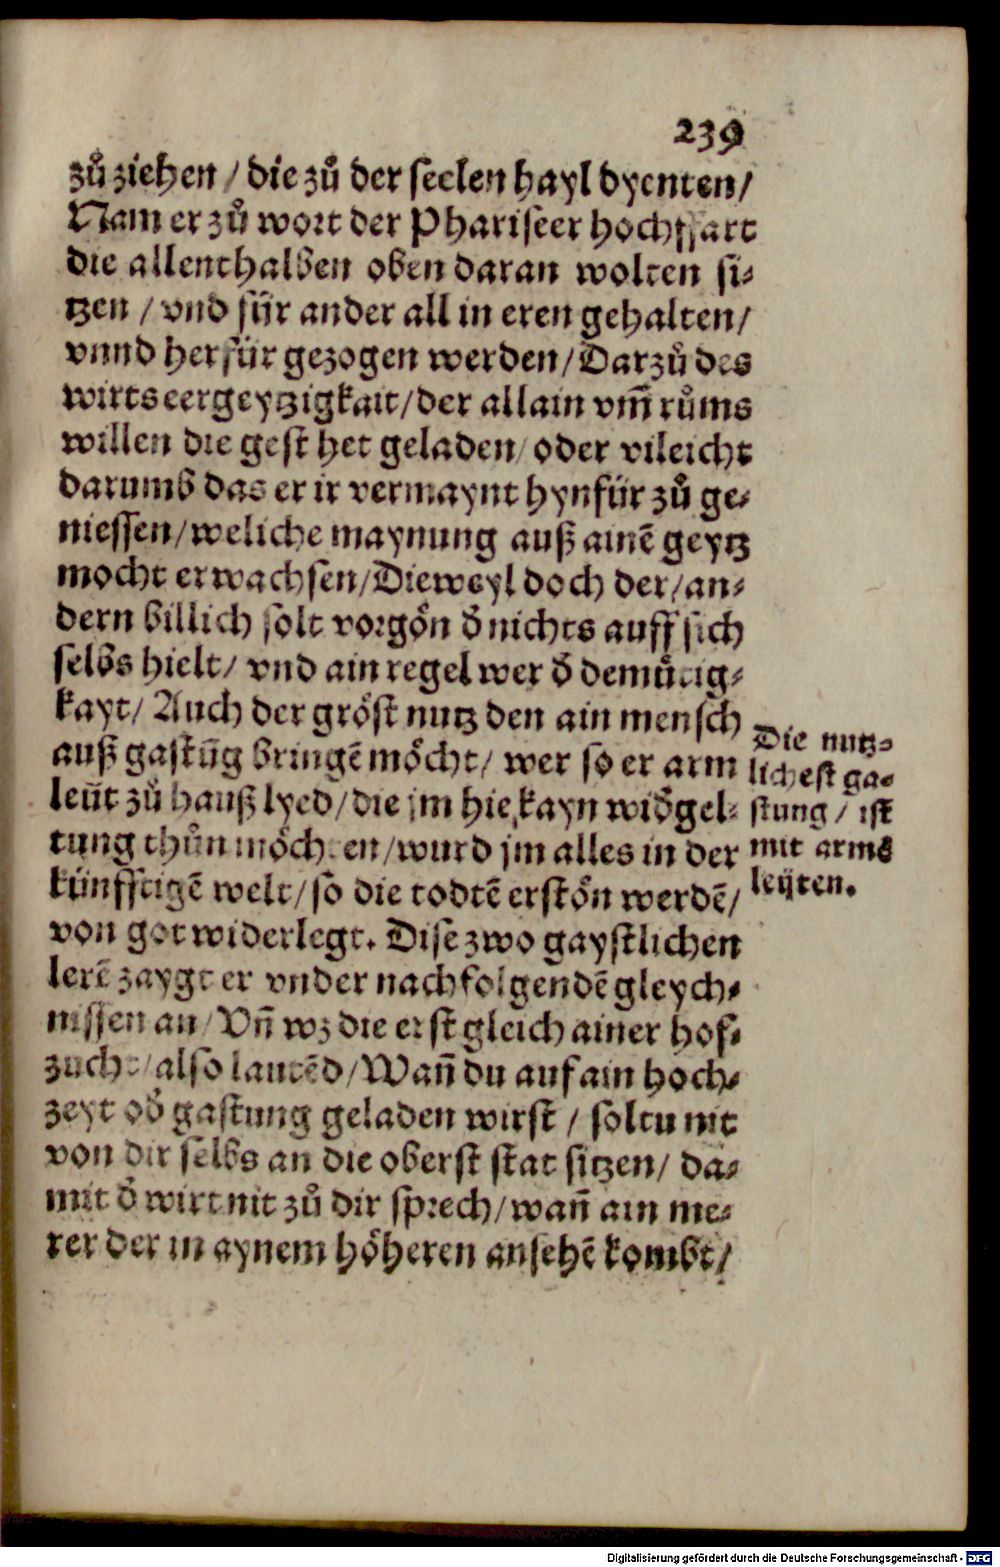 239
zů ziehen / die zů der seelen hayl dyenten /
Nam er zů wort der Phariseer hochffart
die allenthalben oben daran wolten si⸗
tzen / vnd für ander all in eren gehalten /
vnnd herfür gezogen werden / Darzů des
wirts eergeytzigkait / der allain vm̃ růms
willen die gest het geladen / oder vileicht
darumb das er ir vermaynt hynfür zů ge⸗
niessen / weliche maynung auß ainẽ geytz
mocht erwachsen / Dieweyl doch der / an⸗
dern billich solt vorgön d̕ nichts auff sich
selbs hielt / vnd ain regel wer d̕ demůtig⸗
kayt / Auch der gröst nutz den ain mensch
auß gastũg bringẽ möcht / wer so er arm
leüt zů hauß lyed / die jm hie kayn wid̕gel⸗
tung thůn möchten / wurd jm alles in der
künfftigẽ welt / so die todtẽ erstön werdẽ /
von got widerlegt. Dise zwo gaystlichen
lerẽ zaygt er vnder nachfolgendẽ gleych⸗
nissen an / Vñ wz die erst gleich ainer hof⸗
zucht / also lautẽd / Wañ du auf ain hoch⸗
zeyt od̕ gastung geladen wirst / soltu nit
von dir selbs an die oberst stat sitzen / da⸗
mit d̕ wirt nit zů dir sprech / wañ ain me⸗
rer der in aynem höheren ansehẽ kombt /
Die nutz⸗
lichest ga⸗
stung / ist
mit armẽ
leüten.
Digitalisierung gefördert durch die Deutsche Forschungsgemeinschaft - DFG